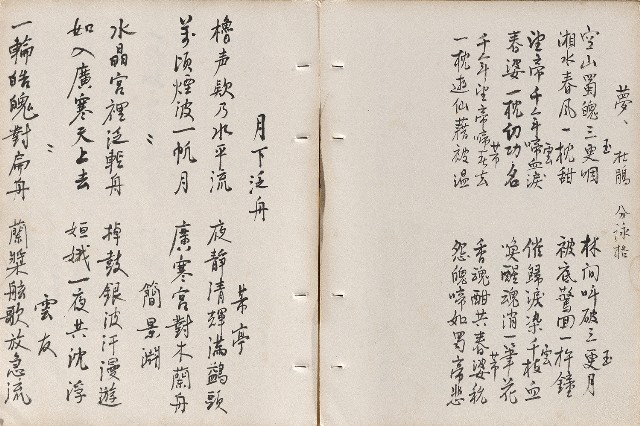 夢、杜鵑 分詠格
空山蜀魄三更咽 林间叫破三更月
玉 玉
湘水春风一枕甜 被底驚回一杵鐘
望帝千年啼血淚 催歸淚染千枝血
雲 雲
春婆一枕劫功名 喚醒魂消一筆花
千年望帝啼春去 香魂酣共春婆秘
芾 芾
一枕遊仙藉被温 怨魄啼如蜀帝悲
月下泛舟
櫓声欸乃水平流 夜静清輝满鷁頭
芾亭
萬頃煙波一帆月 廣寒宮對木蘭舟
〃 簡景淵
水晶宮裡泛輕舟 棹鼓銀波汗漫遊
如入廣寒天上去 姮娥一夜共沈浮
〃 雲友
一輪皓魄對扁舟 蘭槳舷歌放急流